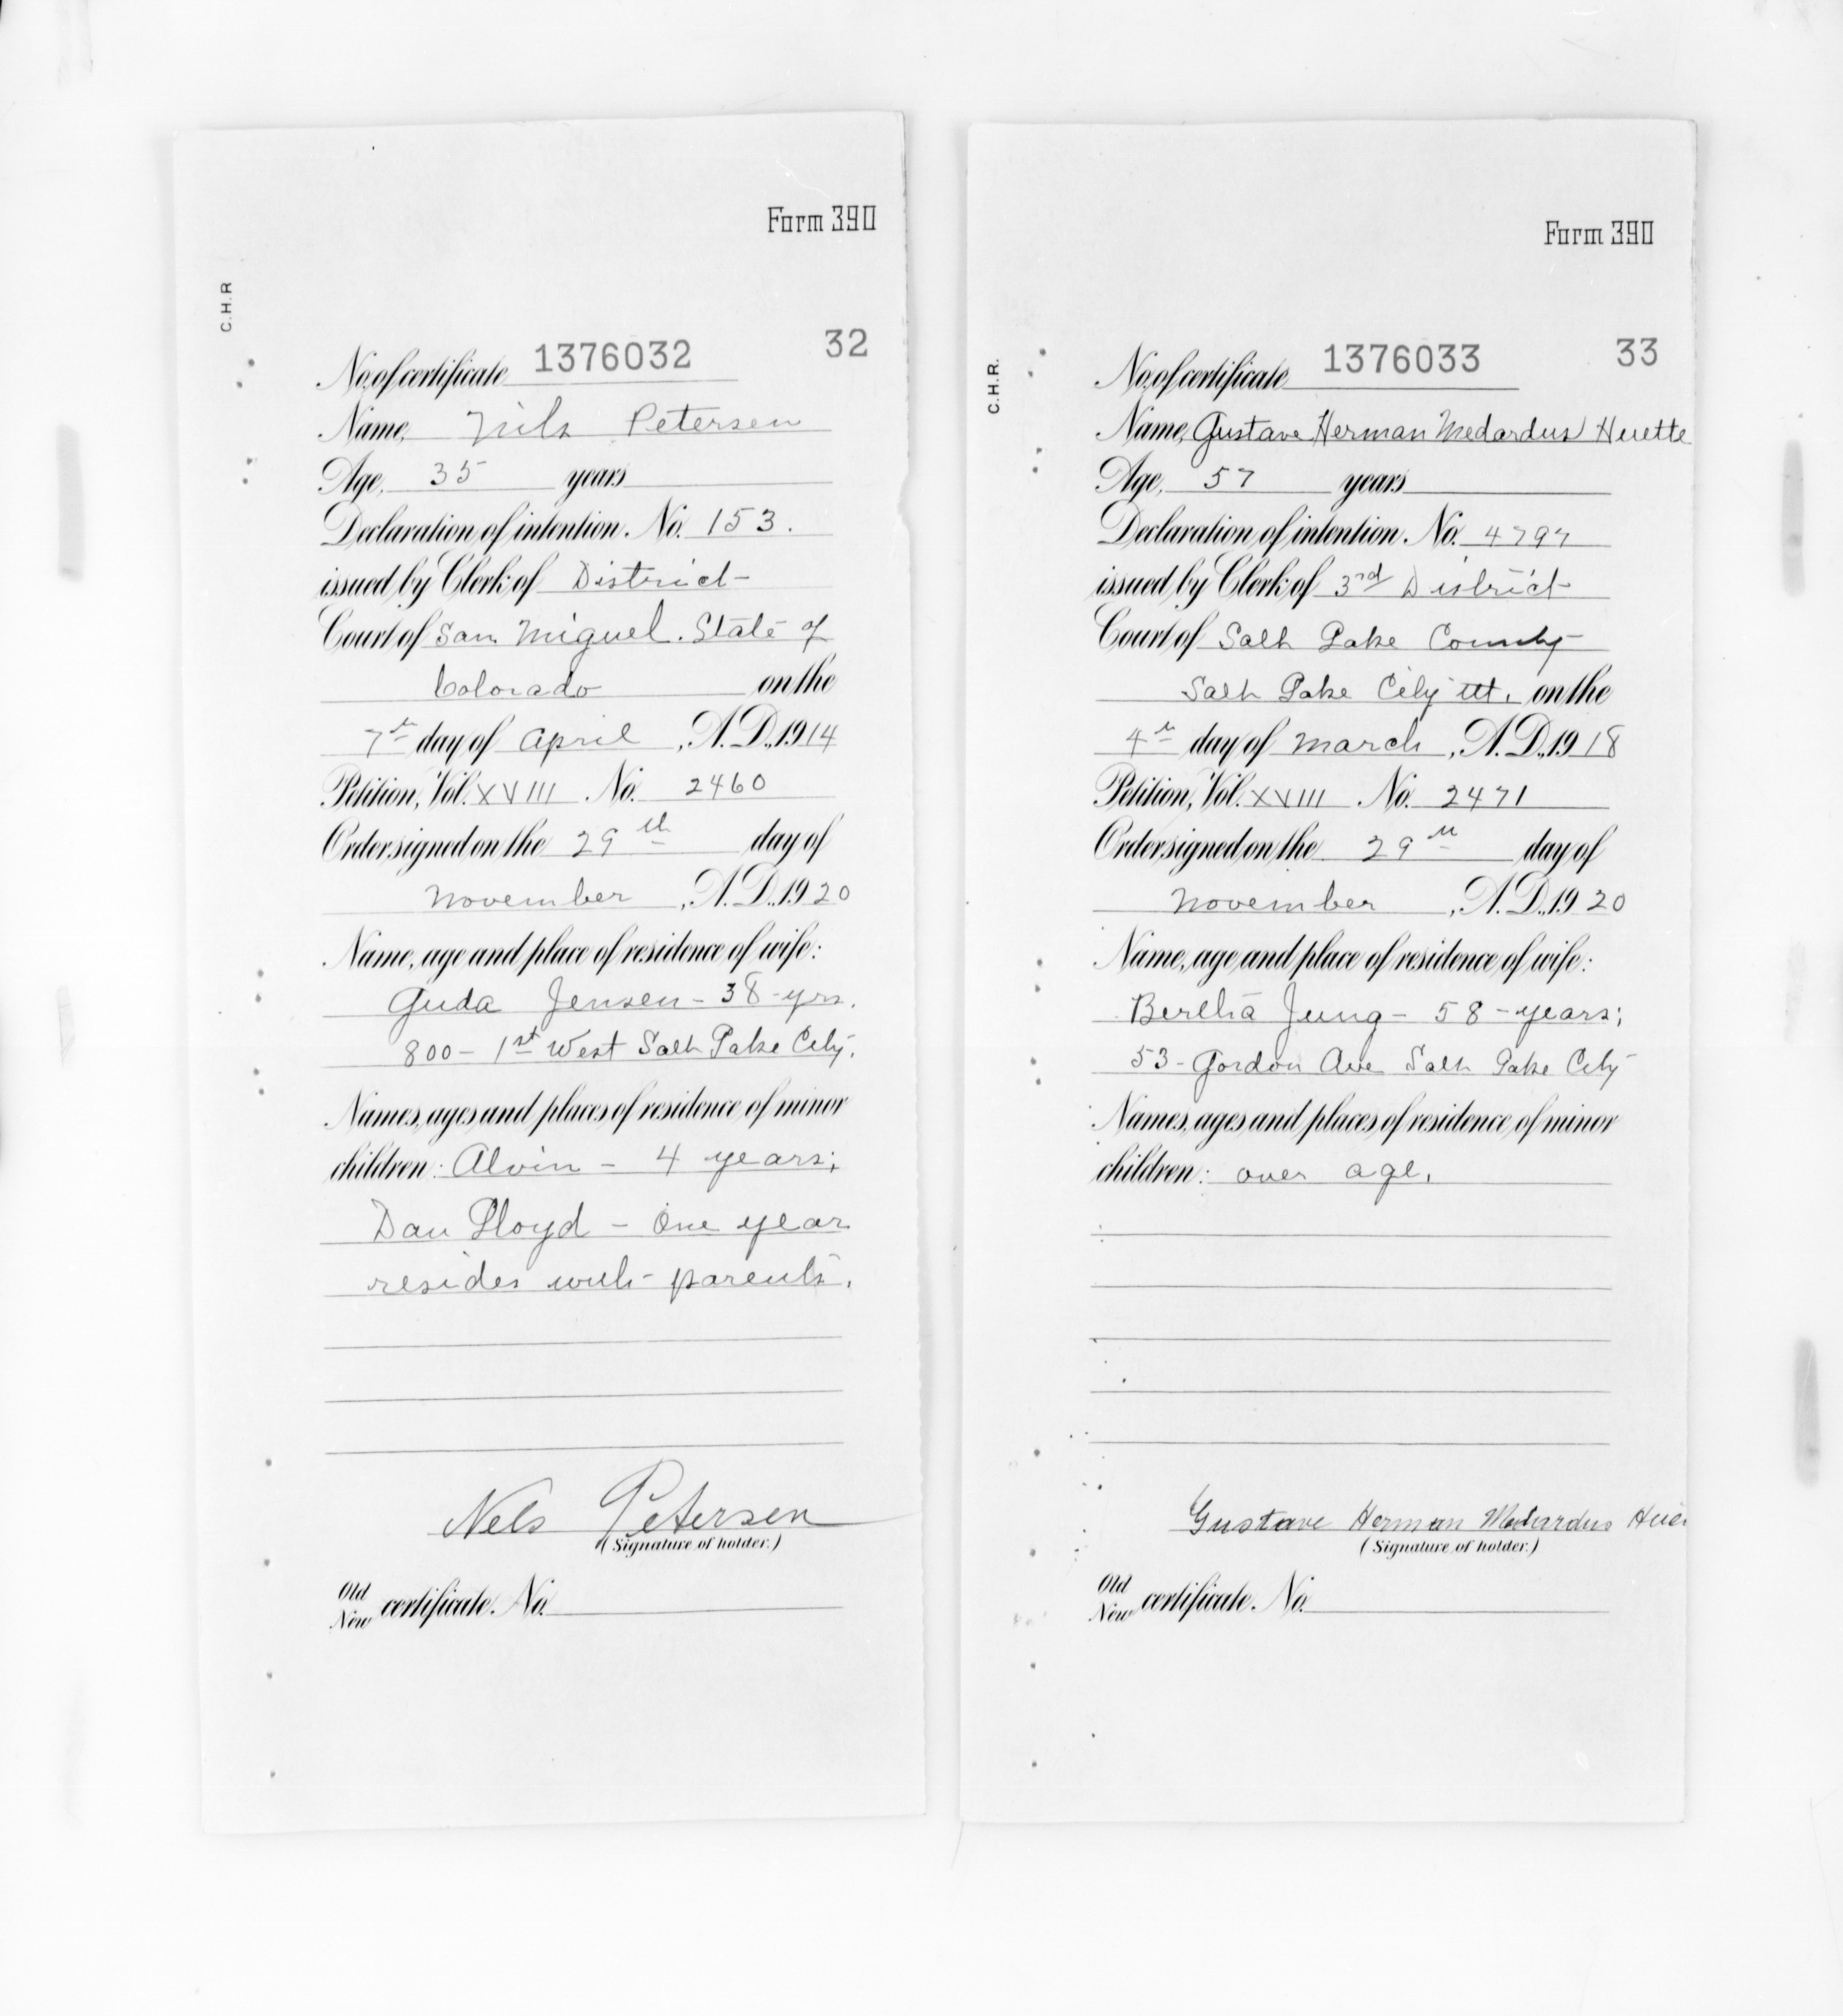 Form 390
C.H.R
32
No. of certificate 1376032
Name, Nils Petersen
Age, 35 years
Declaration of intention. No. 153.
issued by Clerk of District
Court of San Miguel. State of
Colorado on the
7th day of April, A.D., 1914
Petition, Vol. XVIII No. 2460
Order signed on the 29th day of
November, A.D., 1920
Name, age and place of residence of wife:
Guda Jensen - 38 - yrs.
800 - 1st West Salt Lake City.
Names, ages and places of residence of minor
children: Alvin - 4 years;
Dan Lloyd - One year
resides with parents.
Nels Petersen
(Signature of holder.)
Old
New certificate. No.
Form 390
C.H.R.
33
No. of certificate 1376033
Name, Gustave Herman Medardus Huette
Age, 57 years
Declaration of intention. No. 4797
issued by Clerk of 3rd District
Court of Salt Lake County
Salt Lake City Ut. on the
4th day of March, A.D., 1918
Petition, Vol. XVIII No. 2471
Order signed on the 29th day of
November, A.D., 1920
Name, age and place of residence of wife:
Bertha Jung - 58 - years;
53 - Gordon Ave Salt Lake City
Names, ages and places of residence of minor
children: over age.
Gustave Herman Medardus Hue
(Signature of holder.)
Old
New certificate. No.